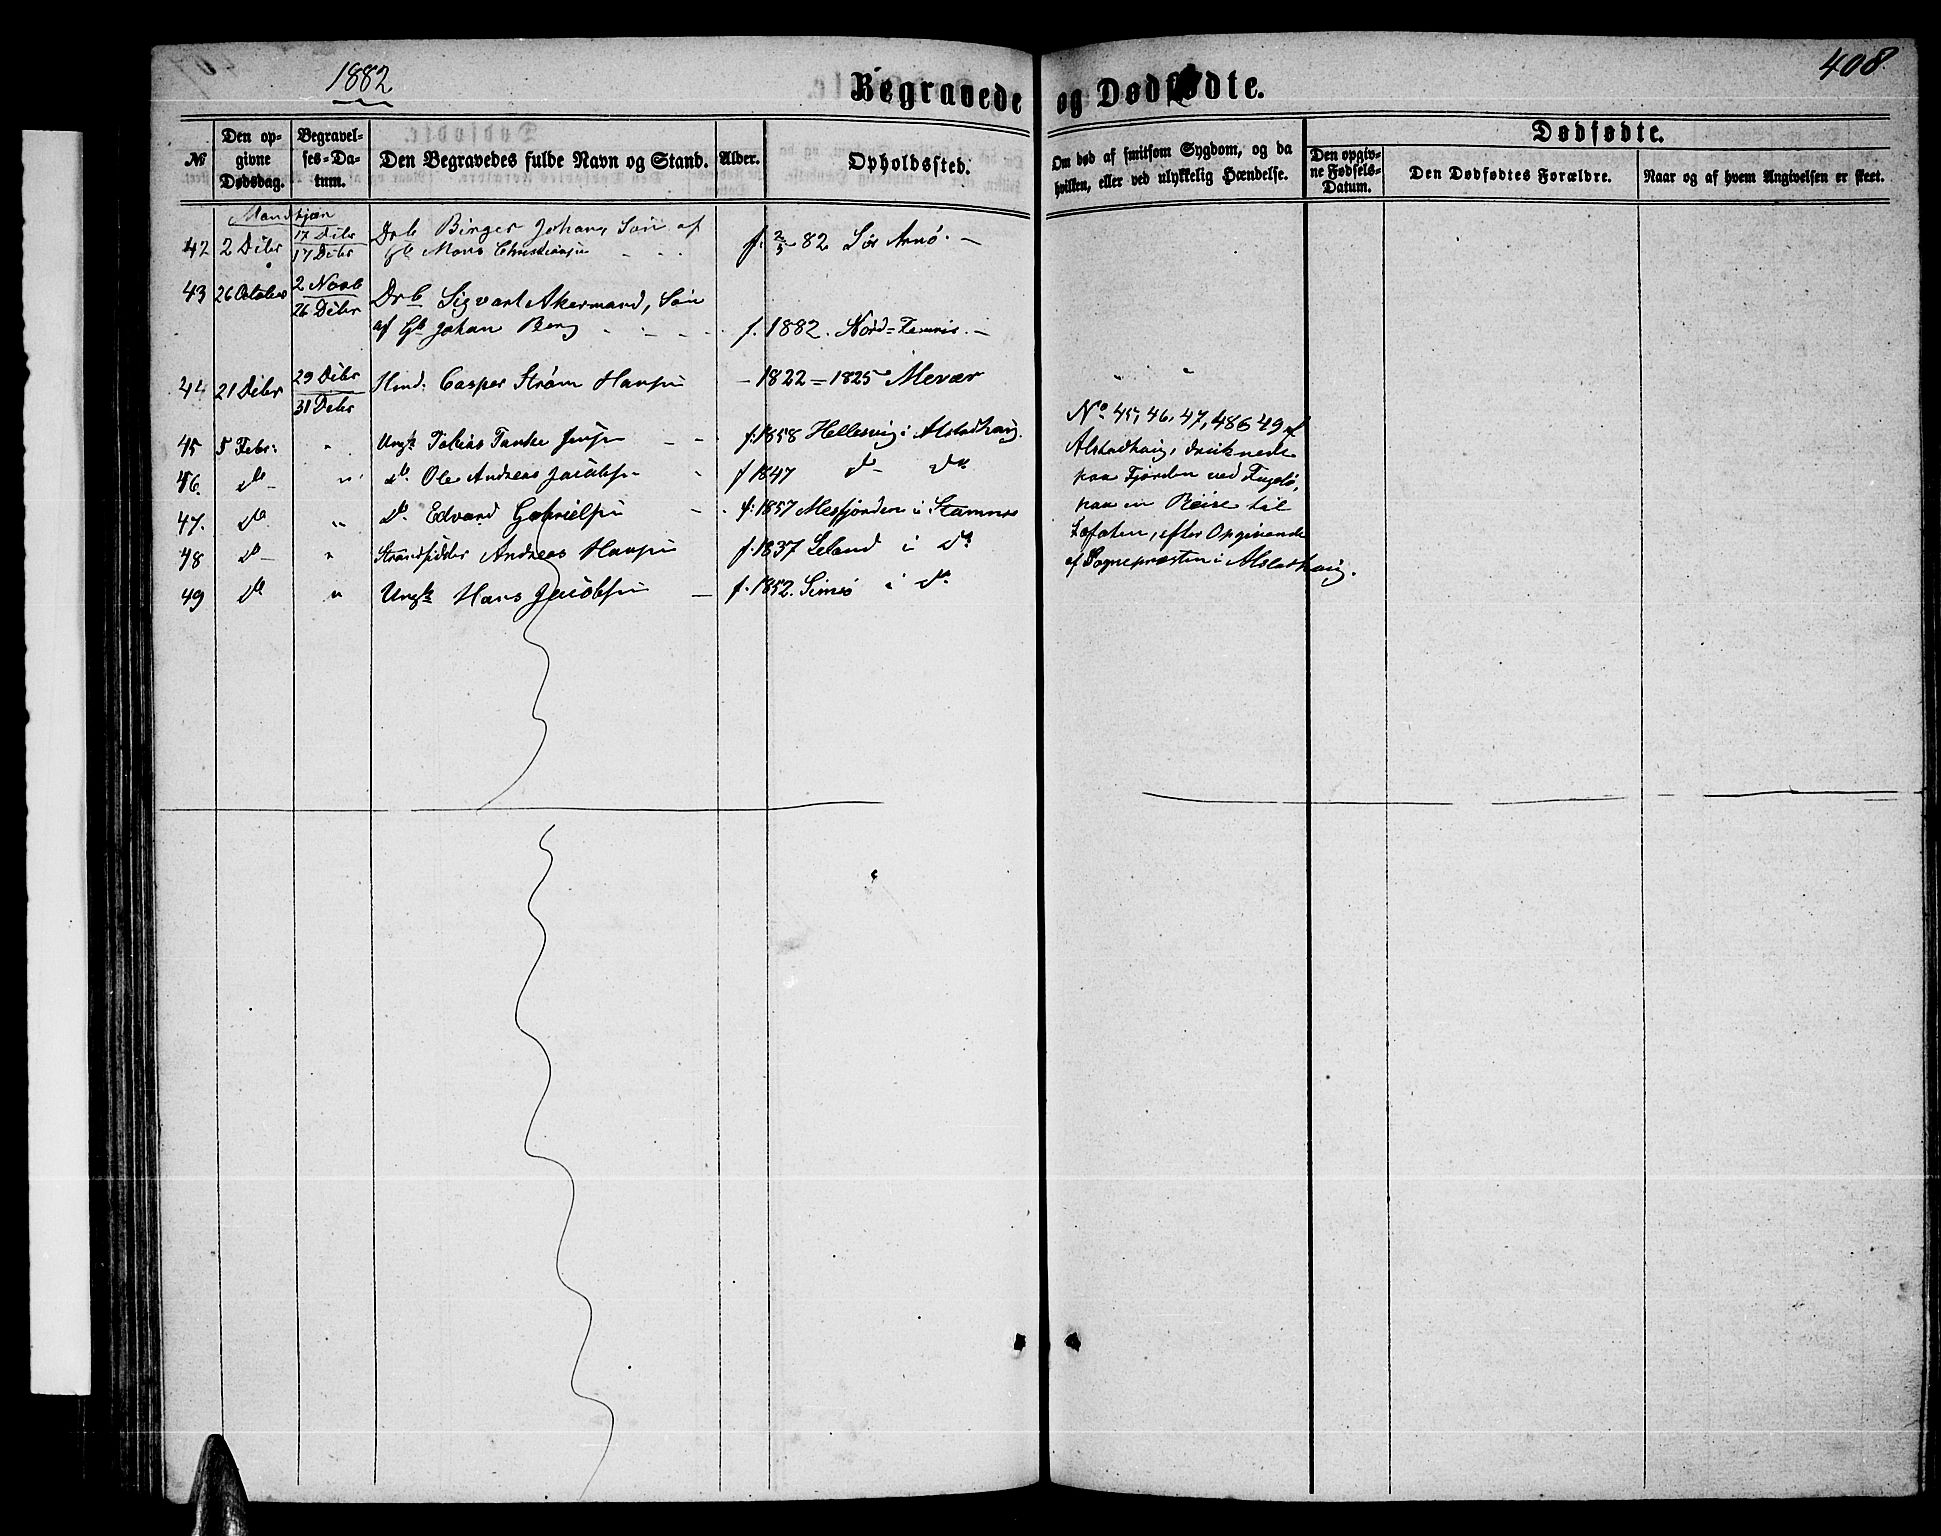 1882
408
Begravede og Dødfødte.
№
Den op-
givne
Dødsdag.
Begravel-
ses-Da-
tum.
Den Begravedes fulde Navn og Stand.
Alder.
Opholdssted.
Om død af smitsom Sygdom, og da
hvilken, eller ved ulykkelig Hændelse.
Dødfødte.
Den opgiv-
ne Fødsels-
Datum.
Den Dødfødtes Forældre.
Naar og af hvem Angivelsen er skeet.
Mandkjøn
42 2 Debr 17 Debr 17 Debr Drb Birger Johan, Søn af
Gb Mons Christiansen f. 2/5 82 Sør Arnø. —
43 26 October 2 Novb 26 Debr Drb Sigvart Akermand, Søn
af Gb Johan Berg f. 1882. Nord=
44 21 Debr 29 Debr 31 Debr Casper Strøm Hansen — 1822 = 1825 Mevær
45 5 Febr: " Ungk Tobias Tanke Jensen f: 1858 Hellesvig i Alstadhaug.
46. do " do Ole Andreas Jacobsen f 1847 do do
47. do " do Edvard Gabrielsen f: 1857 Mesfjorden i Stamnes
48 do " Strandsidder Andreas Hansen f. 1837 Leland i do
49 do " Ungk Hans Jacobsen — f. 1852. i do
No 45, 46, 47, 48 & 49 af
Alstadhaug, druknede
paa Fjorden ved Fugelø,
paa en Reise til
Lofoten, efter Opgivende
af Sognepræsten i Alstadhaug.